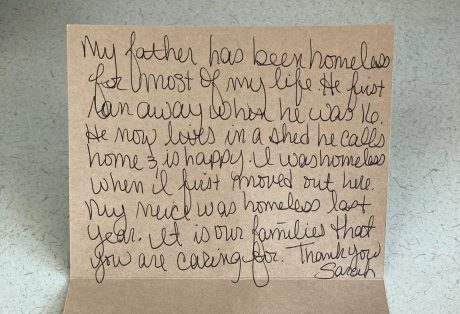 My father has been homeless
for most of my life. He first
ran away when he was 16.
He now lives in a shed he calls
home & is happy. I was homeless
when I first moved out here.
My neice was homeless last
year. It is our families that
you are caring for. Thank you
Sarah